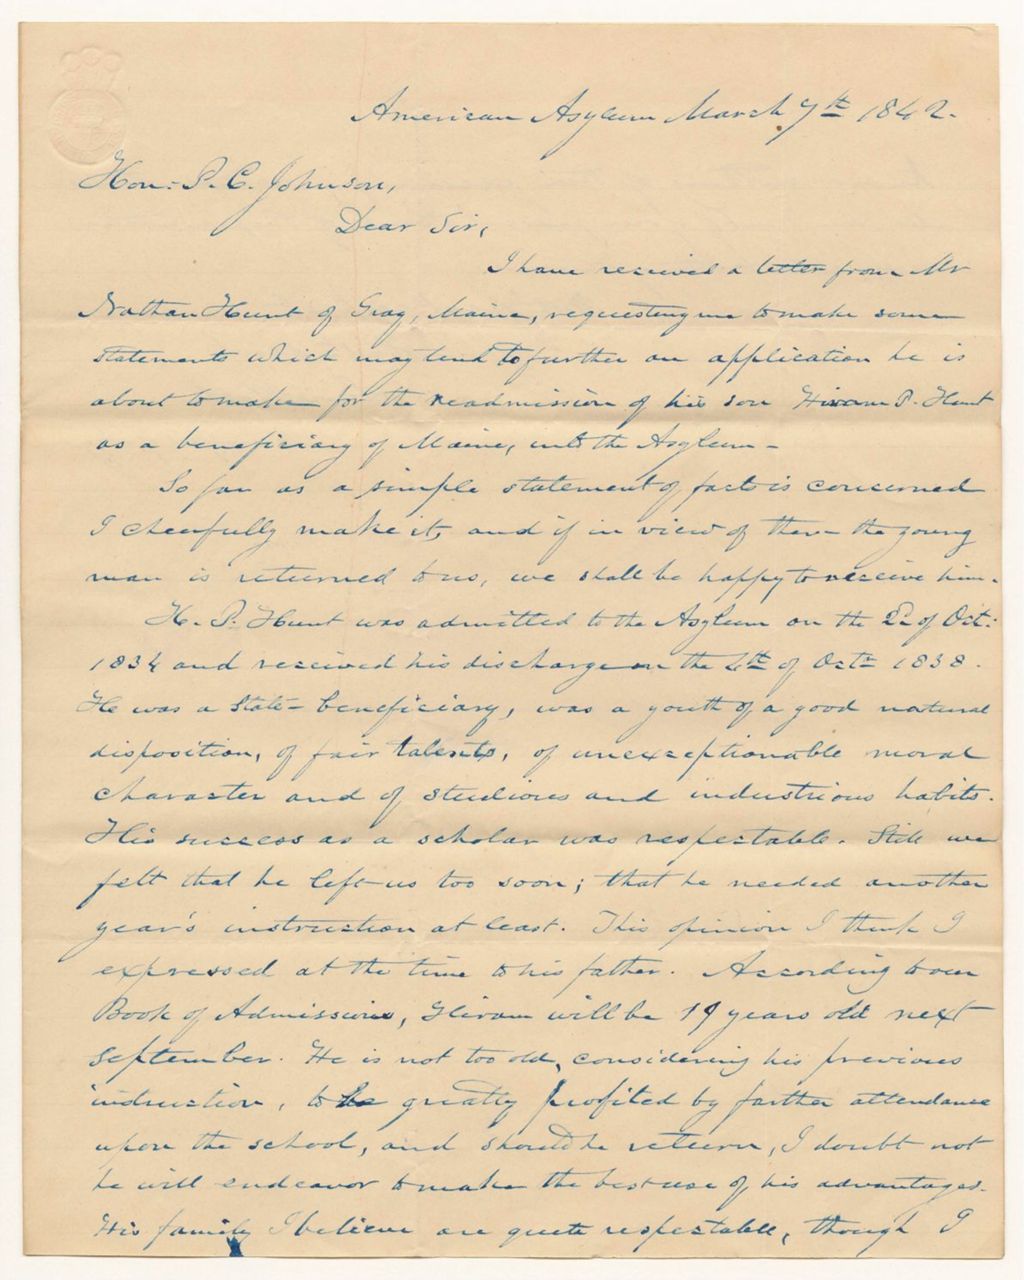 American Asylum March 7th 1842.
Hon: P. C. Johnson,
Dear Sir,
I have received a letter from Mr
Nathan Hunt of Gray, Maine, requesting me to make some
statements which may tend to further an application he is
about to make for the readmission of his son Hiram P. Hunt
as a beneficiary of Maine, into the Asylum -
So far as a simple statement of facts is concerned
I cheerfully make it, and if in view of them the young
man is returned to us, we shall be happy to receive him.
H. P. Hunt was admitted to the Asylum on the 2d of Oct:
1834 and received his discharge on the 4th of Octr 1838.
He was a State-beneficiary, was a youth of a good natural
disposition, of fair talents, of unexceptionable moral
character and of studious and industrious habits.
His success as a scholar was respectable. Still we
felt that he left us too soon; that he needed another
year's instruction at least. This opinion I think I
expressed at the time to his father. According to our
Book of Admissions, Hiram will be 19 years old next
September. He is not too old, considering his previous
instruction, to be greatly profited by farther attendance
upon the school, and should he return, I doubt not
he will endeavor to make the best use of his advantages.
His family I believe are quite respectable, though I